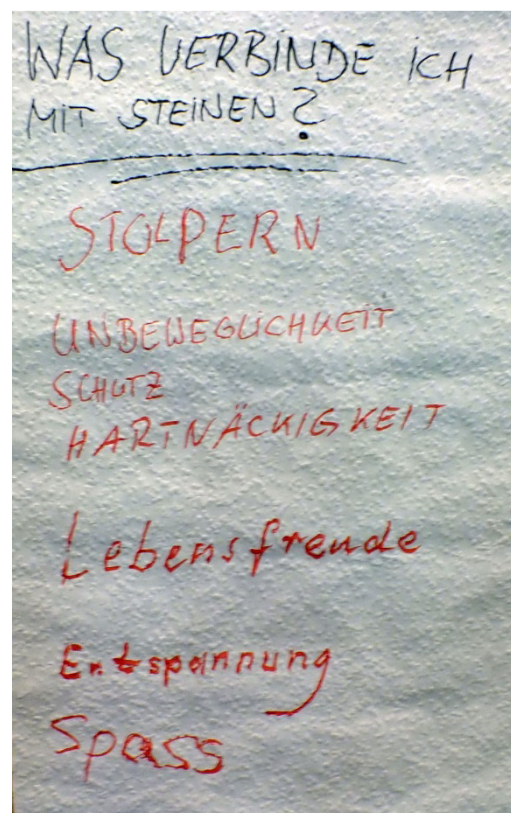 WAS VERBINDE ICH
MIT STEINEN?
STOLPERN
UNBEWEGLICHKEIT
SCHUTZ
HARTNÄCKIGKEIT
Lebensfreude
Entspannung
Spass